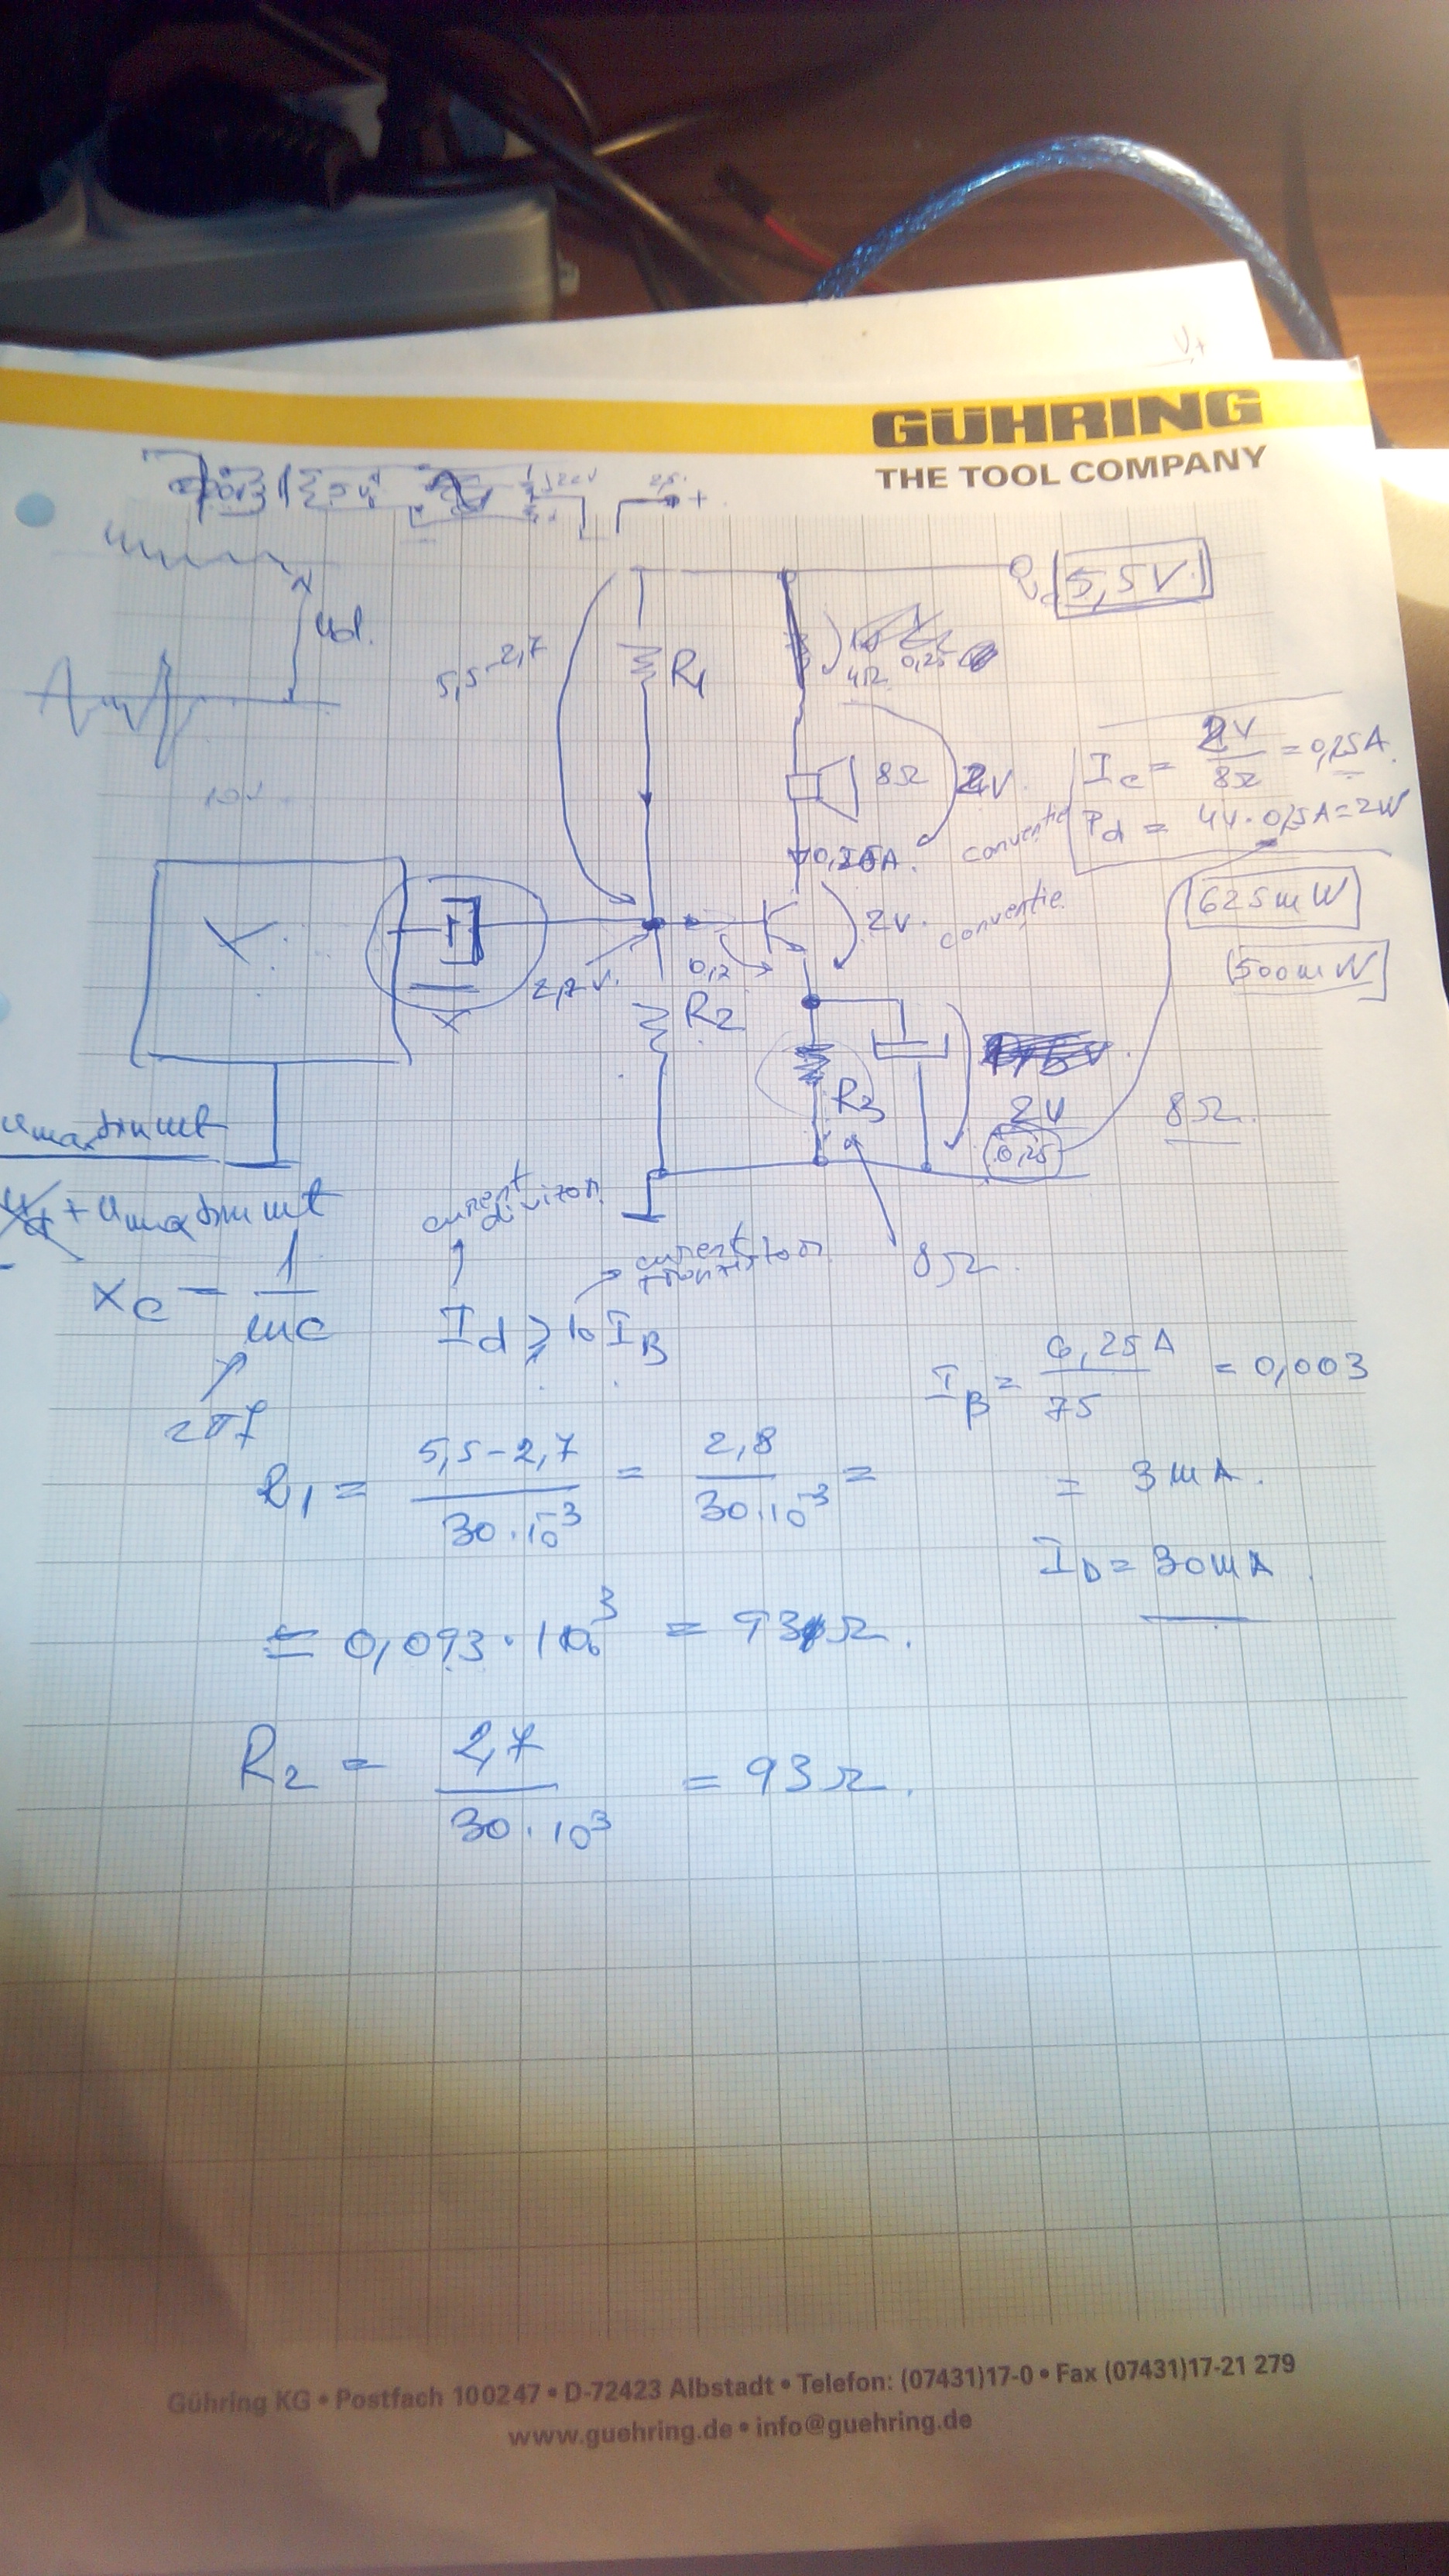 GÜHRING
THE TOOL COMPANY
V+
+
5,5V.
Ud.
5,5-2,7
R1
4Ω 0,25
10V.
8Ω 2V.
Ic = 2V/8Ω = 0,25A.
conventie
Pd = 4V·0,5A=2W
625mW
500mW
2V. conventie.
2,7V.
0,7
R2
R3
2V
0,25
8Ω.
umax sin ωt
+ umax sin ωt
current
divizor
current
tranzistor
8Ω.
Xc = 1/ωc
2πf
Id ⩾ 10 IB
IB = 0,25A/75 = 0,003
= 3mA.
R1 = 5,5-2,7/30·10⁻³ = 2,8/30·10⁻³ =
ID = 30mA.
= 0,093·10³ = 93Ω.
R2 = 2,7/30·10³ = 93Ω.
Gühring KG • Postfach 100247 • D-72423 Albstadt • Telefon: (07431)17-0 • Fax (07431)17-21 279
www.guehring.de • info@guehring.de